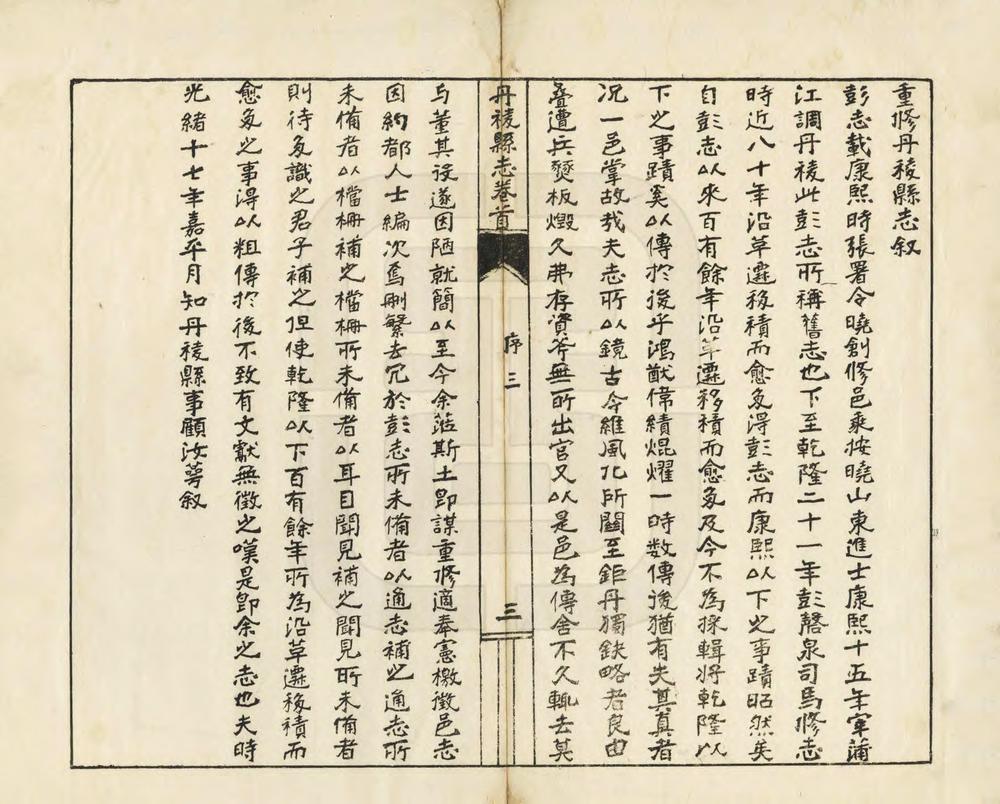 重修丹稜縣志叙
彭志載康熙時張署令曉創修邑乘按曉山東進士康熙十五年宰蒲
江調丹稜此彭志所稱舊志也下至乾隆二十一年彭磬泉司馬修志
時近八十年沿革遷移積而愈多得彭志而康熙以下之事蹟昭然矣
自彭志以來百有餘年沿革遷移積而愈多及今不為採輯將乾隆以
下之事蹟奚以傳於後乎鴻猷偉績焜耀一時数傳後猶有失其真者
况一邑掌故哉夫志所以鏡古今維風化所關至鉅丹獨缺略者良由
疊遭兵燹板燬久弗存資斧無所出官又以是邑為傳舍不久輒去莫
丹稜縣志卷首
序三
三
与董其役遂因陋就簡以至今余蒞斯土即謀重修適奉憲檄徵邑志
因約都人士編次焉刪繁去冗於彭志所未備者以通志補之通志所
未備者以檔柵補之檔柵所未備者以耳目聞見補之聞見所未備者
則待多識之君子補之但使乾隆以下百有餘年所為沿革遷移積而
愈多之事得以粗傳於後不致有文獻無徵之嘆是即余之志也夫時
光緒十七年嘉平月知丹稜縣事顧汝萼叙